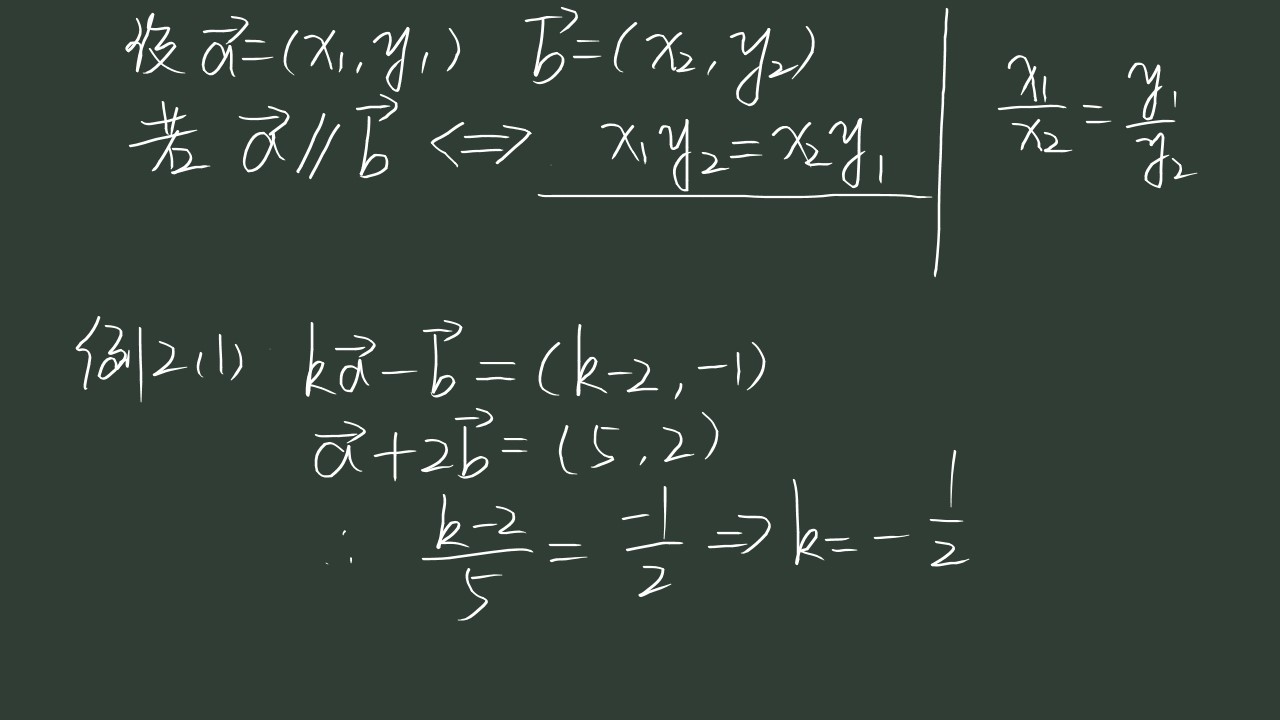 设 a⃗=(x₁,y₁) b⃗=(x₂,y₂)
若 a⃗∥b⃗ <=> x₁y₂=x₂y₁
x₁/x₂=y₁/y₂
例2(1) ka⃗-b⃗=(k-2,-1)
a⃗+2b⃗=(5,2)
∴ (k-2)/5=-1/2 => k=-1/2